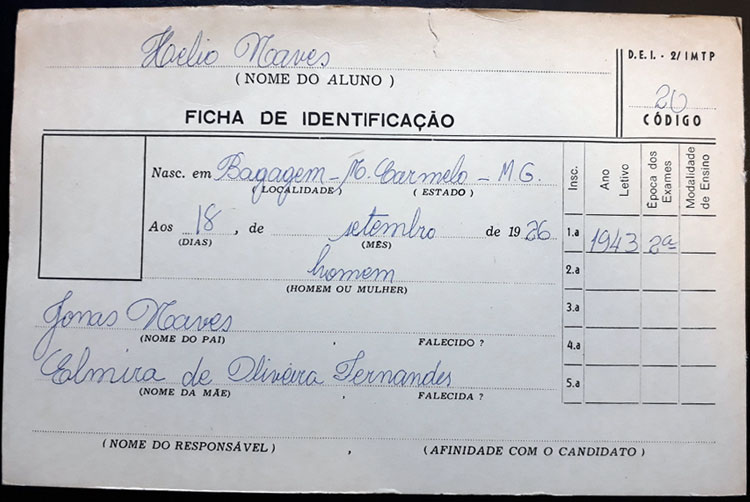 Helio Naves
(NOME DO ALUNO)
D.E.I. - 2/IMTP
20
CÓDIGO
FICHA DE IDENTIFICAÇÃO
Nasc. em Bagagem - M. Carmelo - M G.
(LOCALIDADE) (ESTADO)
Aos 18, de setembro de 1926
(DIAS) (MÊS)
homem
(HOMEM OU MULHER)
Jonas Naves
(NOME DO PAI) FALECIDO ?
Elmira de Oliveira Fernandes
(NOME DA MÃE) , FALECIDA ?
(NOME DO RESPONSÁVEL) , (AFINIDADE COM O CANDIDATO)
Insc. Ano Letivo Época dos Exames Modalidade de Ensino
1.a 1943 2ª
2.a
3.a
4.a
5.a